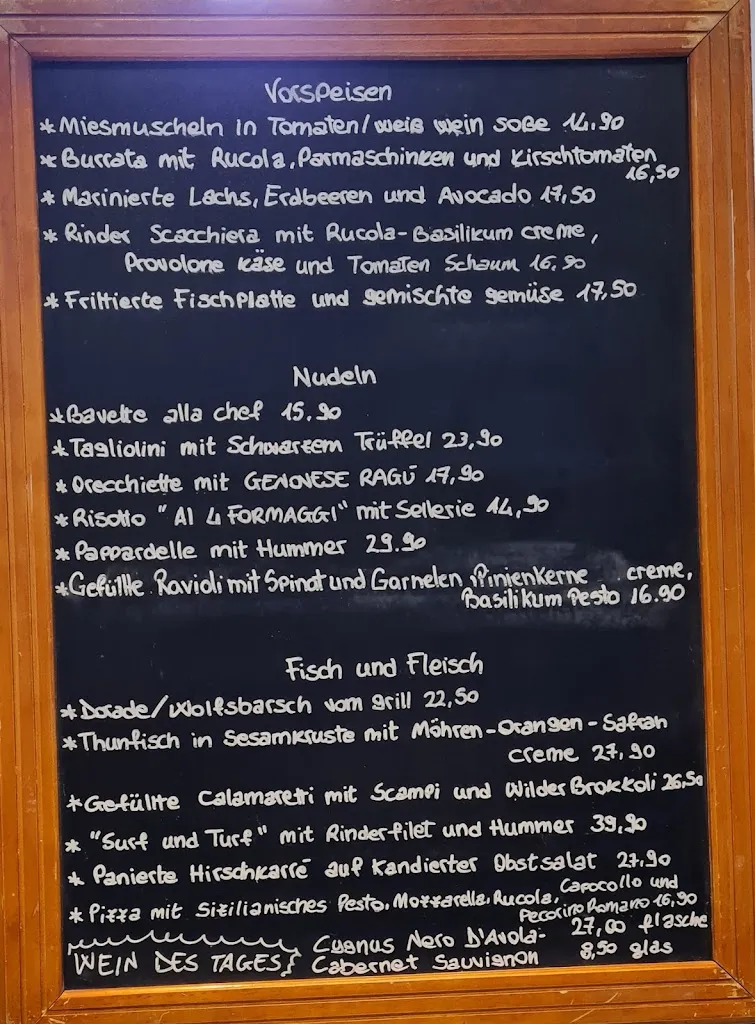 Vorspeisen
* Miesmuscheln in Tomaten/weiß wein soße 14.90
* Burrata mit Rucola, Parmaschinken und Kirschtomaten
16,50
* Marinierte Lachs, Erdbeeren und Avocado 17,50
* Rinder Scacchiera mit Rucola-Basilikum creme,
Provolone käse und Tomaten Schaum 16.90
* Frittierte Fischplatte und gemischte gemüse 17,50
Nudeln
* Bavette alla chef 15.90
* Tagliolini mit Schwarzem Trüffel 23,90
* Orecchiette mit GENOVESE RAGÚ 17,90
* Risotto "AI 4 FORMAGGI" mit Sellerie 14,90
* Pappardelle mit Hummer 29.90
* Gefüllte Ravioli mit Spinat und Garnelen, Pinienkerne creme,
Basilikum Pesto 16.90
Fisch und Fleisch
* Dorade/Wolfsbarsch vom grill 22,50
* Thunfisch in Sesamkruste mit Möhren-Orangen-Safran
creme 27,90
* Gefüllte Calamaretti mit Scampi und Wilder Brokkoli 26,50
* "Surf und Turf" mit Rinderfilet und Hummer 39,90
* Panierte Hirschkarré auf Kandierter Obstsalat 27.90
* Pizza mit Sizilianisches Pesto, Mozzarella, Rucola, Capocollo und
Pecorino Romano 16,90
Cygnus Nero D'Avola- 27,00 flasche
WEIN DES TAGES Cabernet Sauvignon 8,50 glas